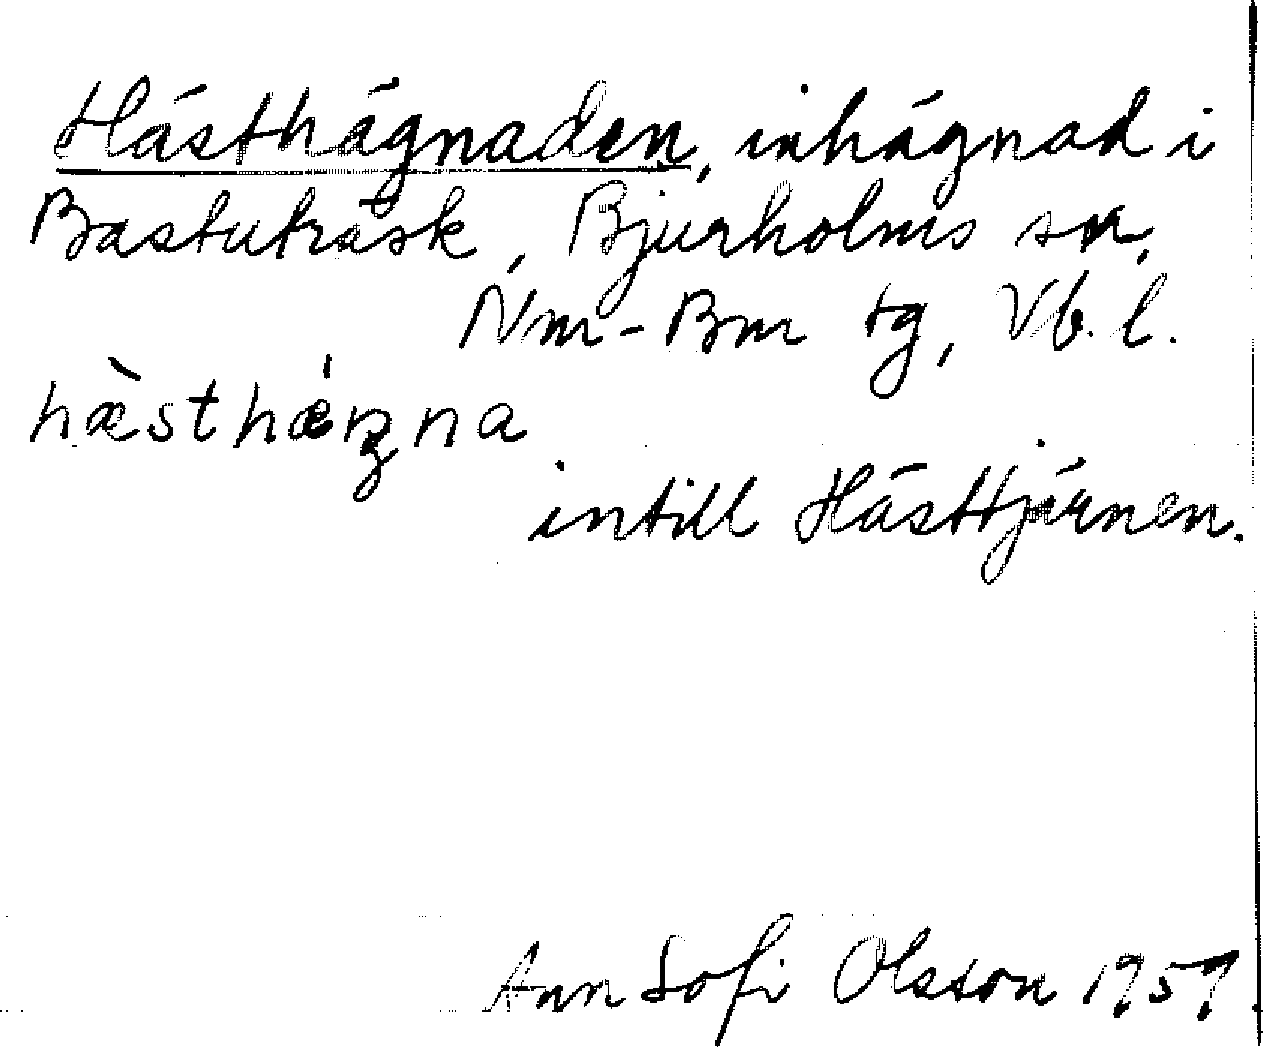 Hästhägnaden, inhägnad i
Bastuträsk, Bjurholms sn,
Nm-Bm tg, Vb. l.
intill Hästtjärnen.
Ann Sofi Olsson 1959.